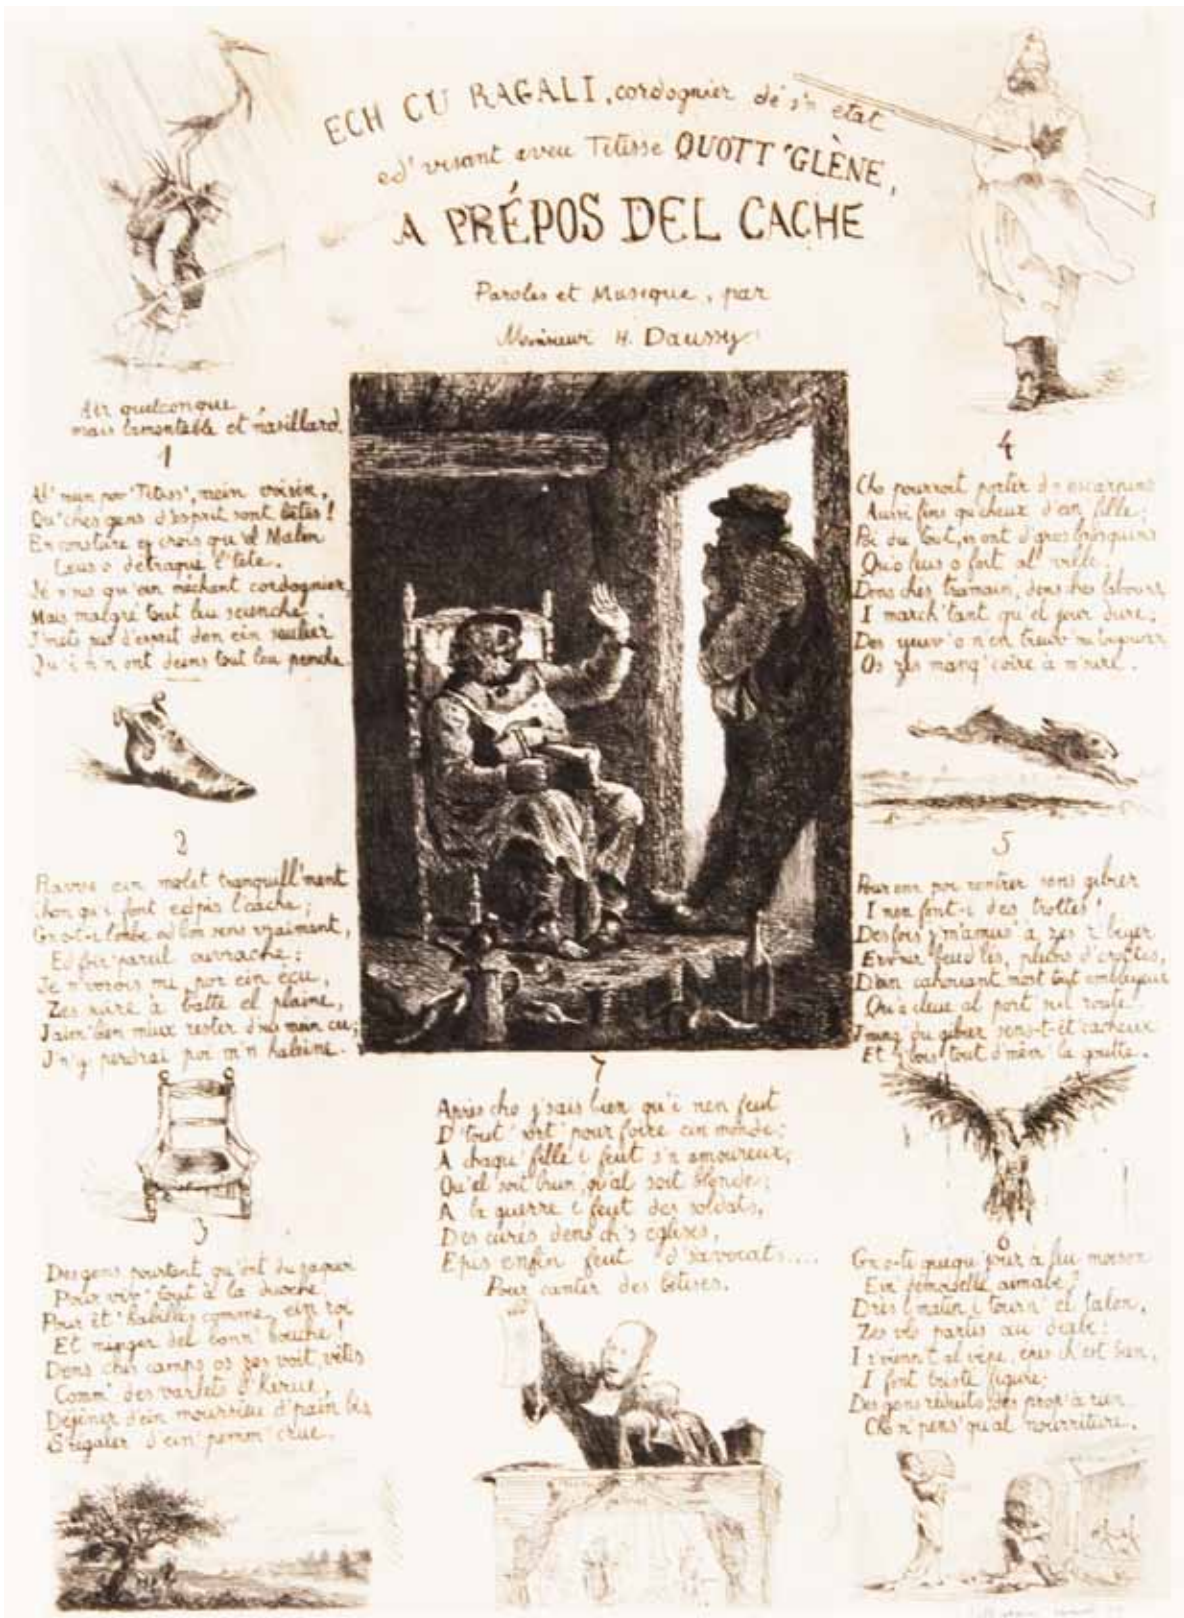 ECH CU RAGALI, cordognier dé s'n etat
ed'visant aveu Tétisse QUOTT'GLÈNE,
A PRÉPOS DEL CACHE
Paroles et Musique, par
Monsieur H. Daussy
Air quelconque
mais lamentable et nasillard.
1
Tétiss', mein voisin,
Qu'ches gens d'esprit sont bêtes!
crois qu'el Malen
Leus o détraqué l'tête.
Jé n'sus qu'ein méchant cordognier
Mais malgré tout leu scienche,
J'mets pus d'esprit den ein soulier
Qu'i n'n ont deins tout leu penche.
2
ein molet tranquill'ment
qu'i font edpis l'cache;
ed bon sens vraiment,
Ed foir' pareil ouvrache;
Je n'vorois mi, por ein écu,
à batte el plaine,
J'aim' bien miux rester d'sus man cu;
J'n'y perdrai por m'n haleine.
3
Des gens pourtant qu'ont du
Pour viv' tout à la douche,
Pour êt' habillés comme ein roi
Et minger del bonn' bouche!
Dens ches camps os zes voit, vêtis
Comm' des varlets d'kerue,
Déjener d'ein moursieu d'pain bis,
S'régaler d'ein' pemm' crue.
4
Cho pourroit porter d's escarpins
Aussi fins qu'cheux d'ein fille;
Poi du tout, is ont d'gros brosquins
Qu'o leus o fort al' ville.
Dens ches tramain', dens ches labours,
I march'tant qu'el jour dure;
Des yeuv' o n'en treuv' mi toujours
Os zes manq' coire à m'sure.
5
Pour enr por rentrer sans gibier
I nen font-i des trottes!
Des fois j'm'amus' à zes r'béyer
pleins d'crottes,
D'ein cahouant mort tout
al port sur route
J'ming' du gibier sans-t-êt' cacheux
Et j'bois tout d'mêm' la goutte.
6
Gn'o-ti queque jour à leu moison
Ein' demoiselle aimabe,
Drès l'matin i tourn' el talon,
Zes vlo partis au diabe;
I font triste figure;
Des gens réduits
Cho n'pens' qu'al nourriture.
7
Après cho j'sais bien qu'i nen feut
D'tout' sort' pour foire ein monde;
A chaqu' fille i feut s'n amoureux,
Qu'el soit brun, qu'al soit blonde;
A la guerre i feut des soldats,
Des curés dens ch's églises,
Epis enfin feut d's avocats....
Pour canter des bêtises.